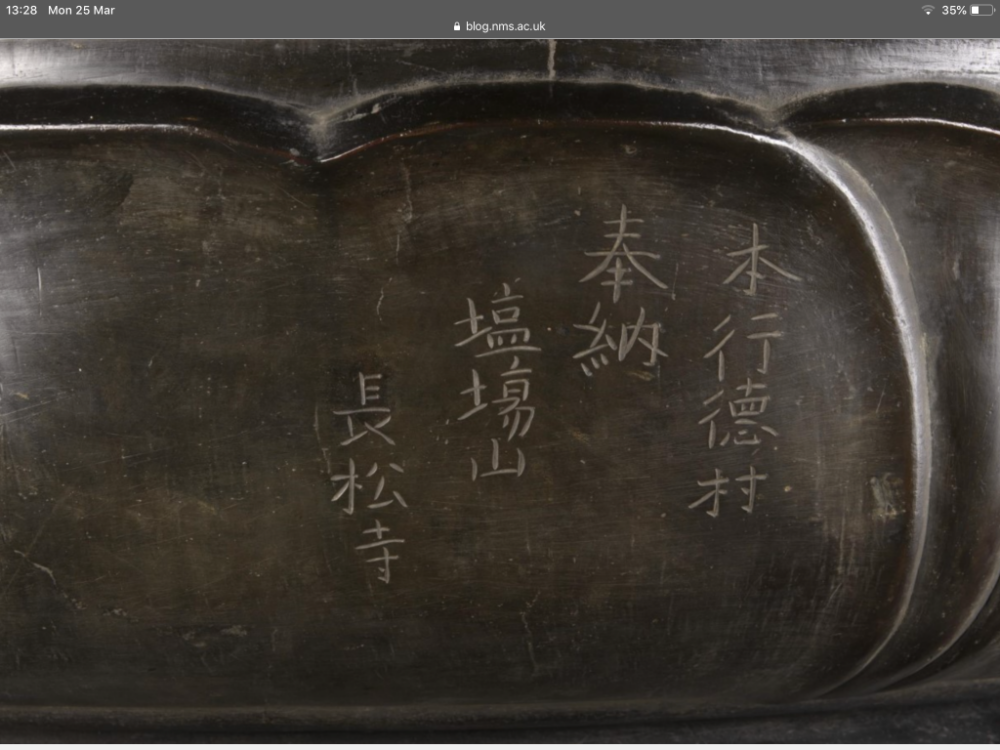 13:28 Mon 25 Mar
35%
blog.nms.ac.uk
本行德村
奉納
塩場山
長松寺